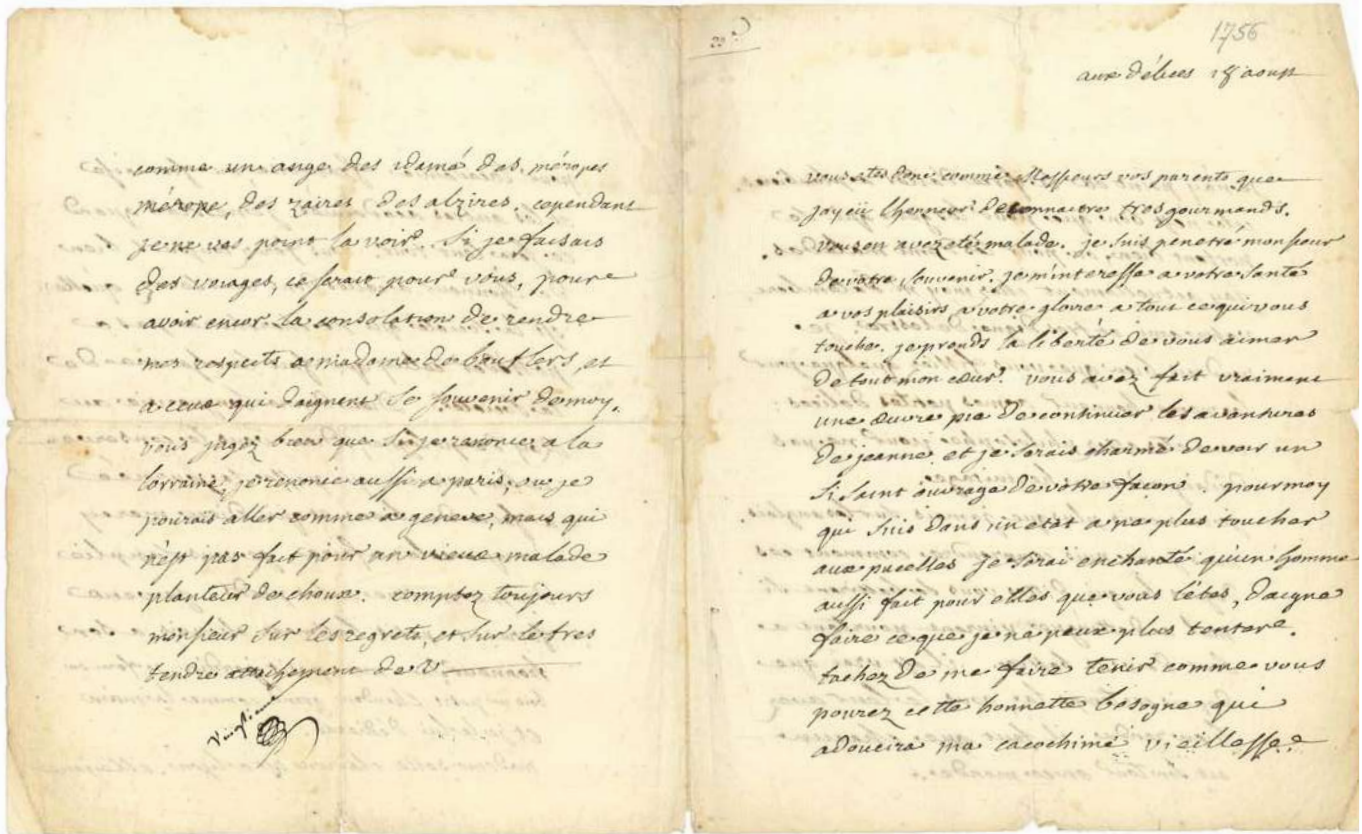 1756
aux délices 18 aoust
vous etes donc comme Messieurs vos parents que
jay eü lhonneur de connaitre tres gourmands.
vous en avez eté malade. je suis penetré monsieur
de votre souvenir. je m'interesse a votre santé
a vos plaisirs a votre gloire a tout ce qui vous
touche. je prends la liberté de vous aimer
de tout mon cœur. vous avez fait vraiment
une œuvre pie de continuer les avantures
de jeanne, et je serais charmé de voir un
si saint ouvrage de votre façon. pour moy
qui suis dans un etat a ne plus toucher
aux pucelles je serai enchanté qu'un homme
aussi fait pour elles que vous l'êtes, daigne
faire ce que je ne peux plus tenter.
tachez de me faire tenir comme vous
pourez cette honnette besogne qui
adoucira ma cacochime vieillesse.
comme un ange des idamé des méropes
mérope, des zaires des alzires. cependant
je ne vas point la voir. si je faisais
des voiages, ce serait pour vous, pour
avoir encor la consolation de rendre
mes respects a madame de boufflers, et
a ceux qui daignent se souvenir de moy.
vous jugez bien que si je renonce a la
lorraine, je renonce aussi a paris, ou je
pourais aller comme a geneve, mais qui
n'est pas fait pour un vieux malade
planteur de choux. comptez toujours
monsieur sur les regrets, et sur le tres
tendre attachement de V
vingtieme